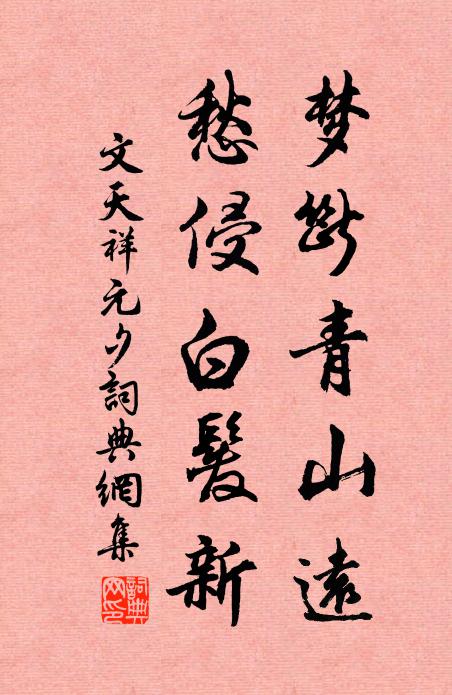 梦断青山遠
愁侵白髮新
文天祥元夕詞典網集
詞典網印